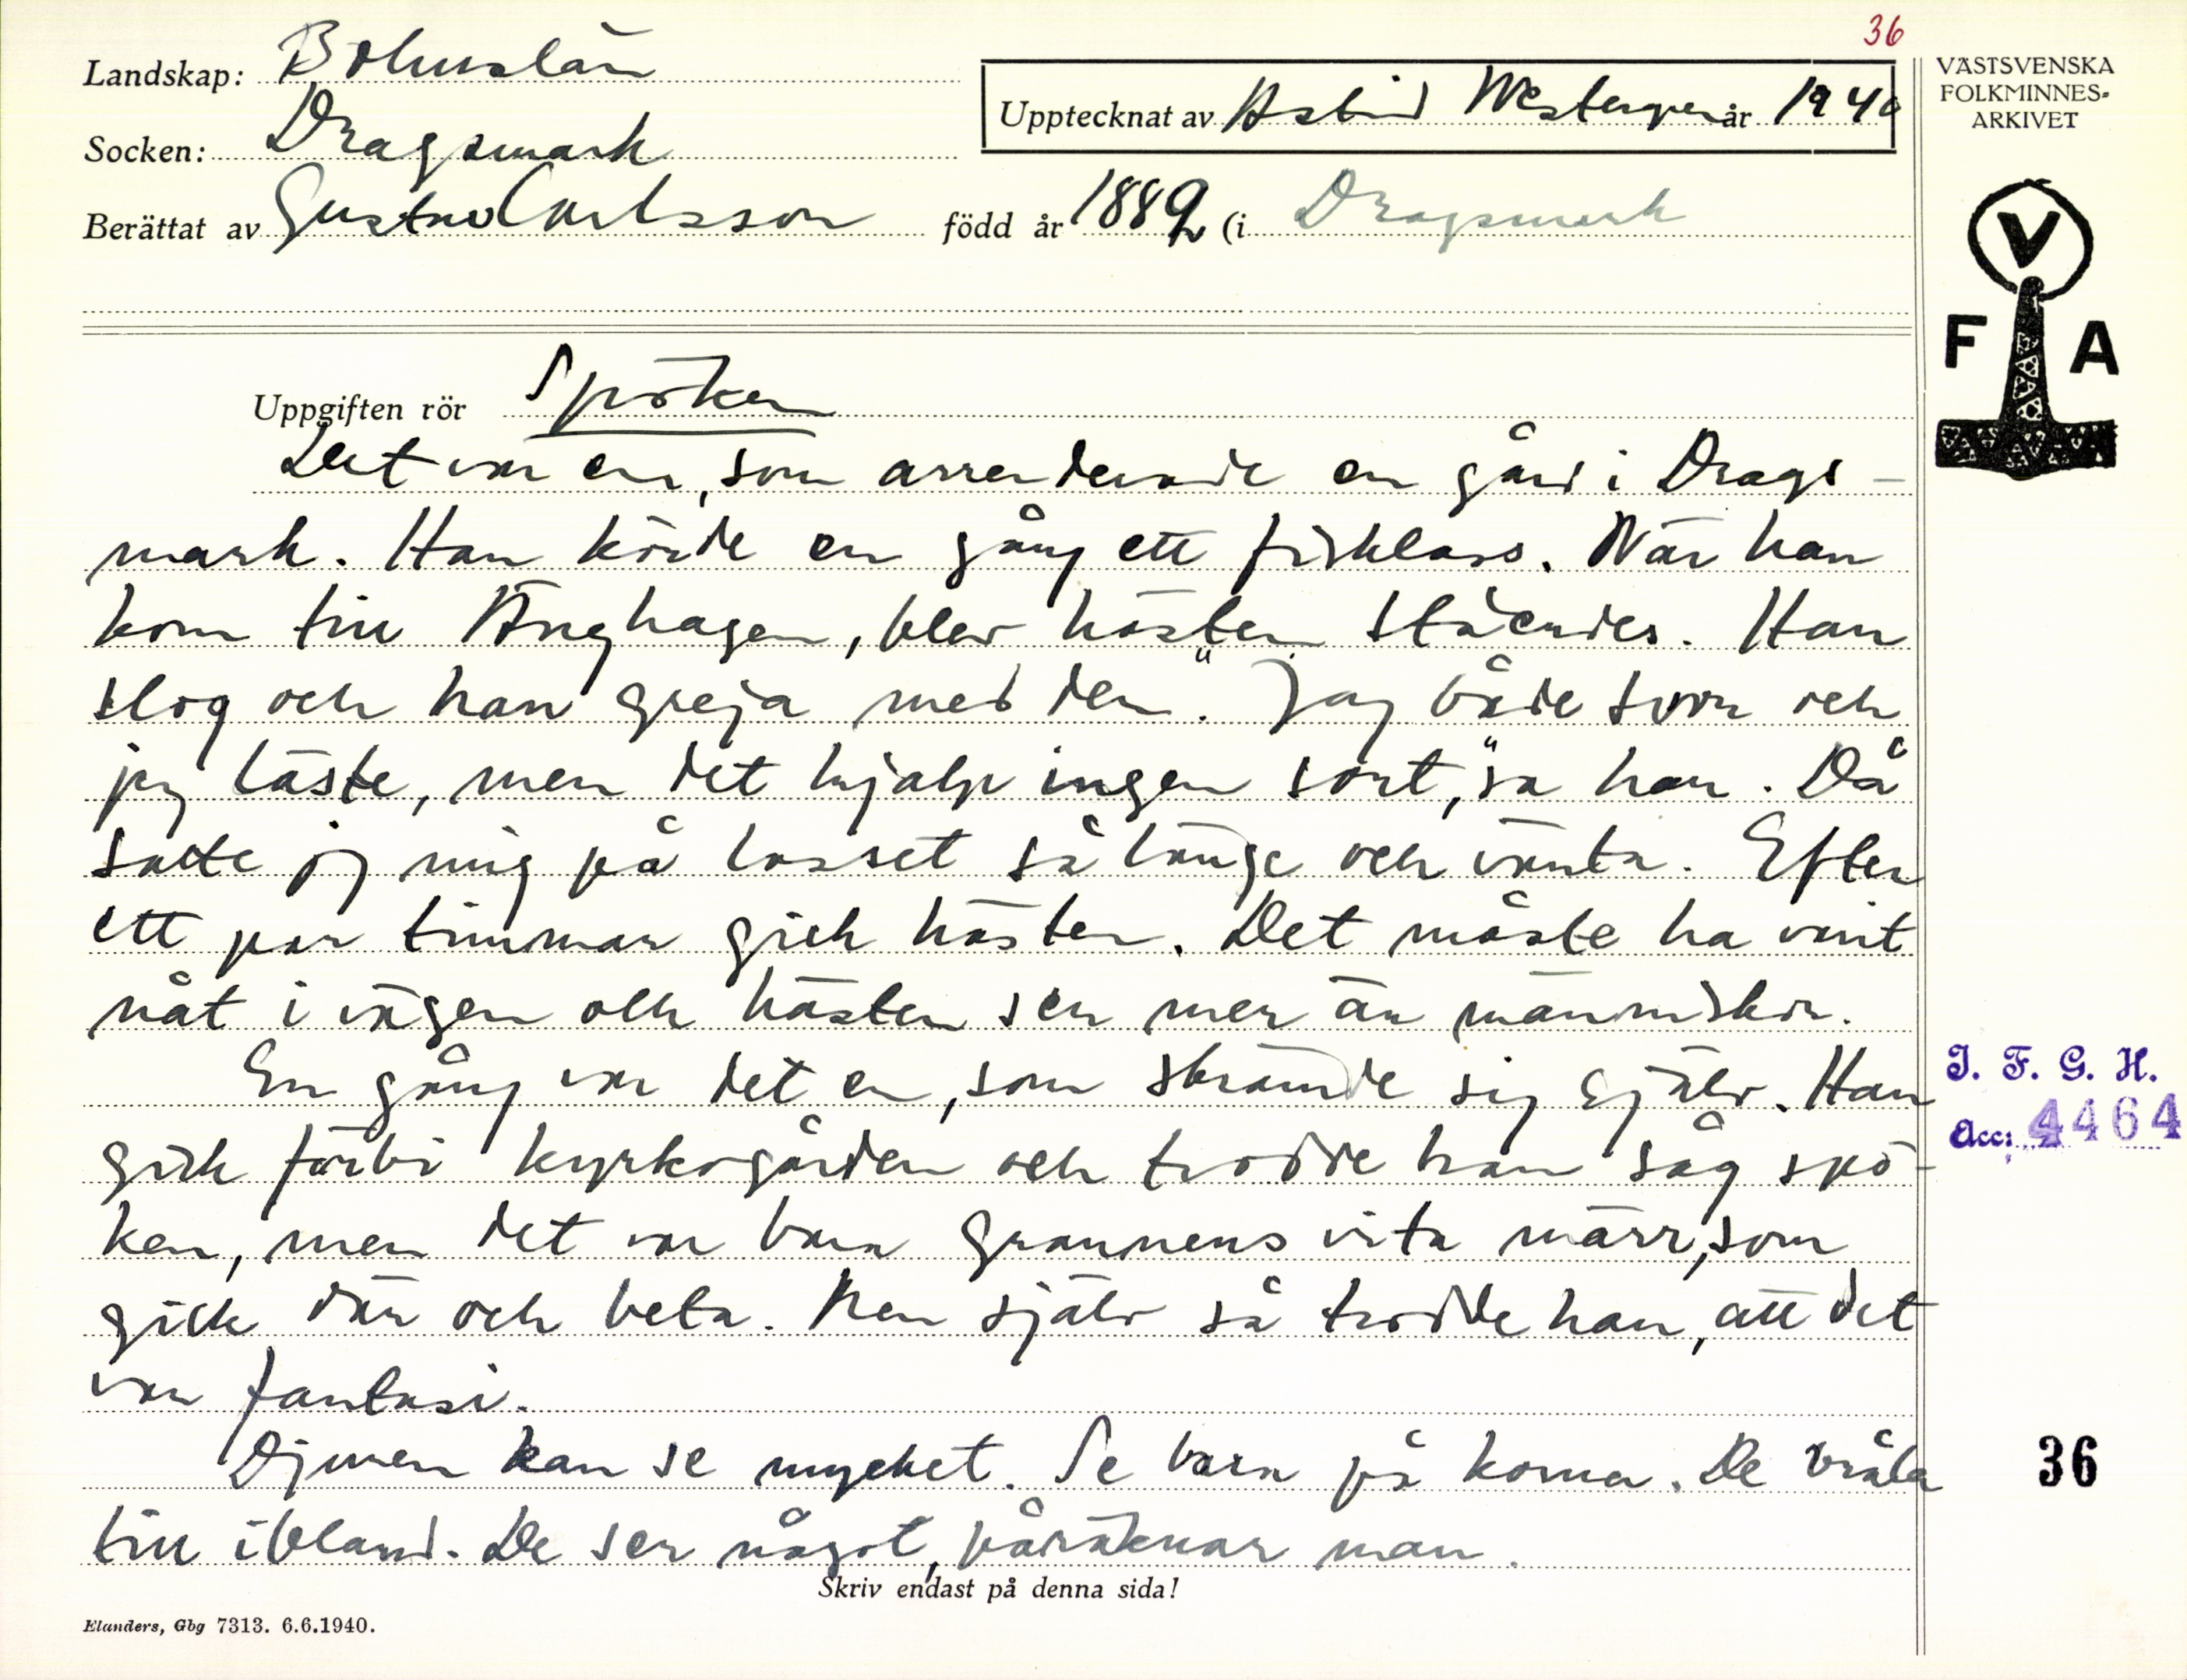 36
Landskap: Bohuslän
Upptecknat av Astrid Westergren år 1940
Socken: Dragsmark
Berättat av Gustav Carlsson född år 1882 (i Dragsmark
VÄSTSVENSKA
FOLKMINNES-
ARKIVET
V
F A
Uppgiften rör Spöken
Det var en, som arrenderade en gård i Drags-
mark. Han körde en gång ett fisklass. När han
kom till Änghagen, blev hästen ståendes. Han
slog och han greja med den. "Jag både svor och
jag läste, men det hjalp ingen sort," sa han. Då
satte jag mig på lasset så länge och vänta. Efter
ett par timmar gick hästen. Det måste ha varit
nåt i vägen och hästen ser mer än människor.
En gång var det en, som skrämde sig själv. Han
gick förbi kyrkogården och trodde han såg spö-
ken, men det var bara grannens vita märr, som
gick där och beta. Men själv så trodde han, att det
var fantasi.
Djuren kan se mycket. Se bara på korna. De vråla
till ibland. De ser något, påräknar man.
Skriv endast på denna sida!
Elanders, Gbg 7313. 6.6.1940.
I. F. G. H.
Acc: 4464
36